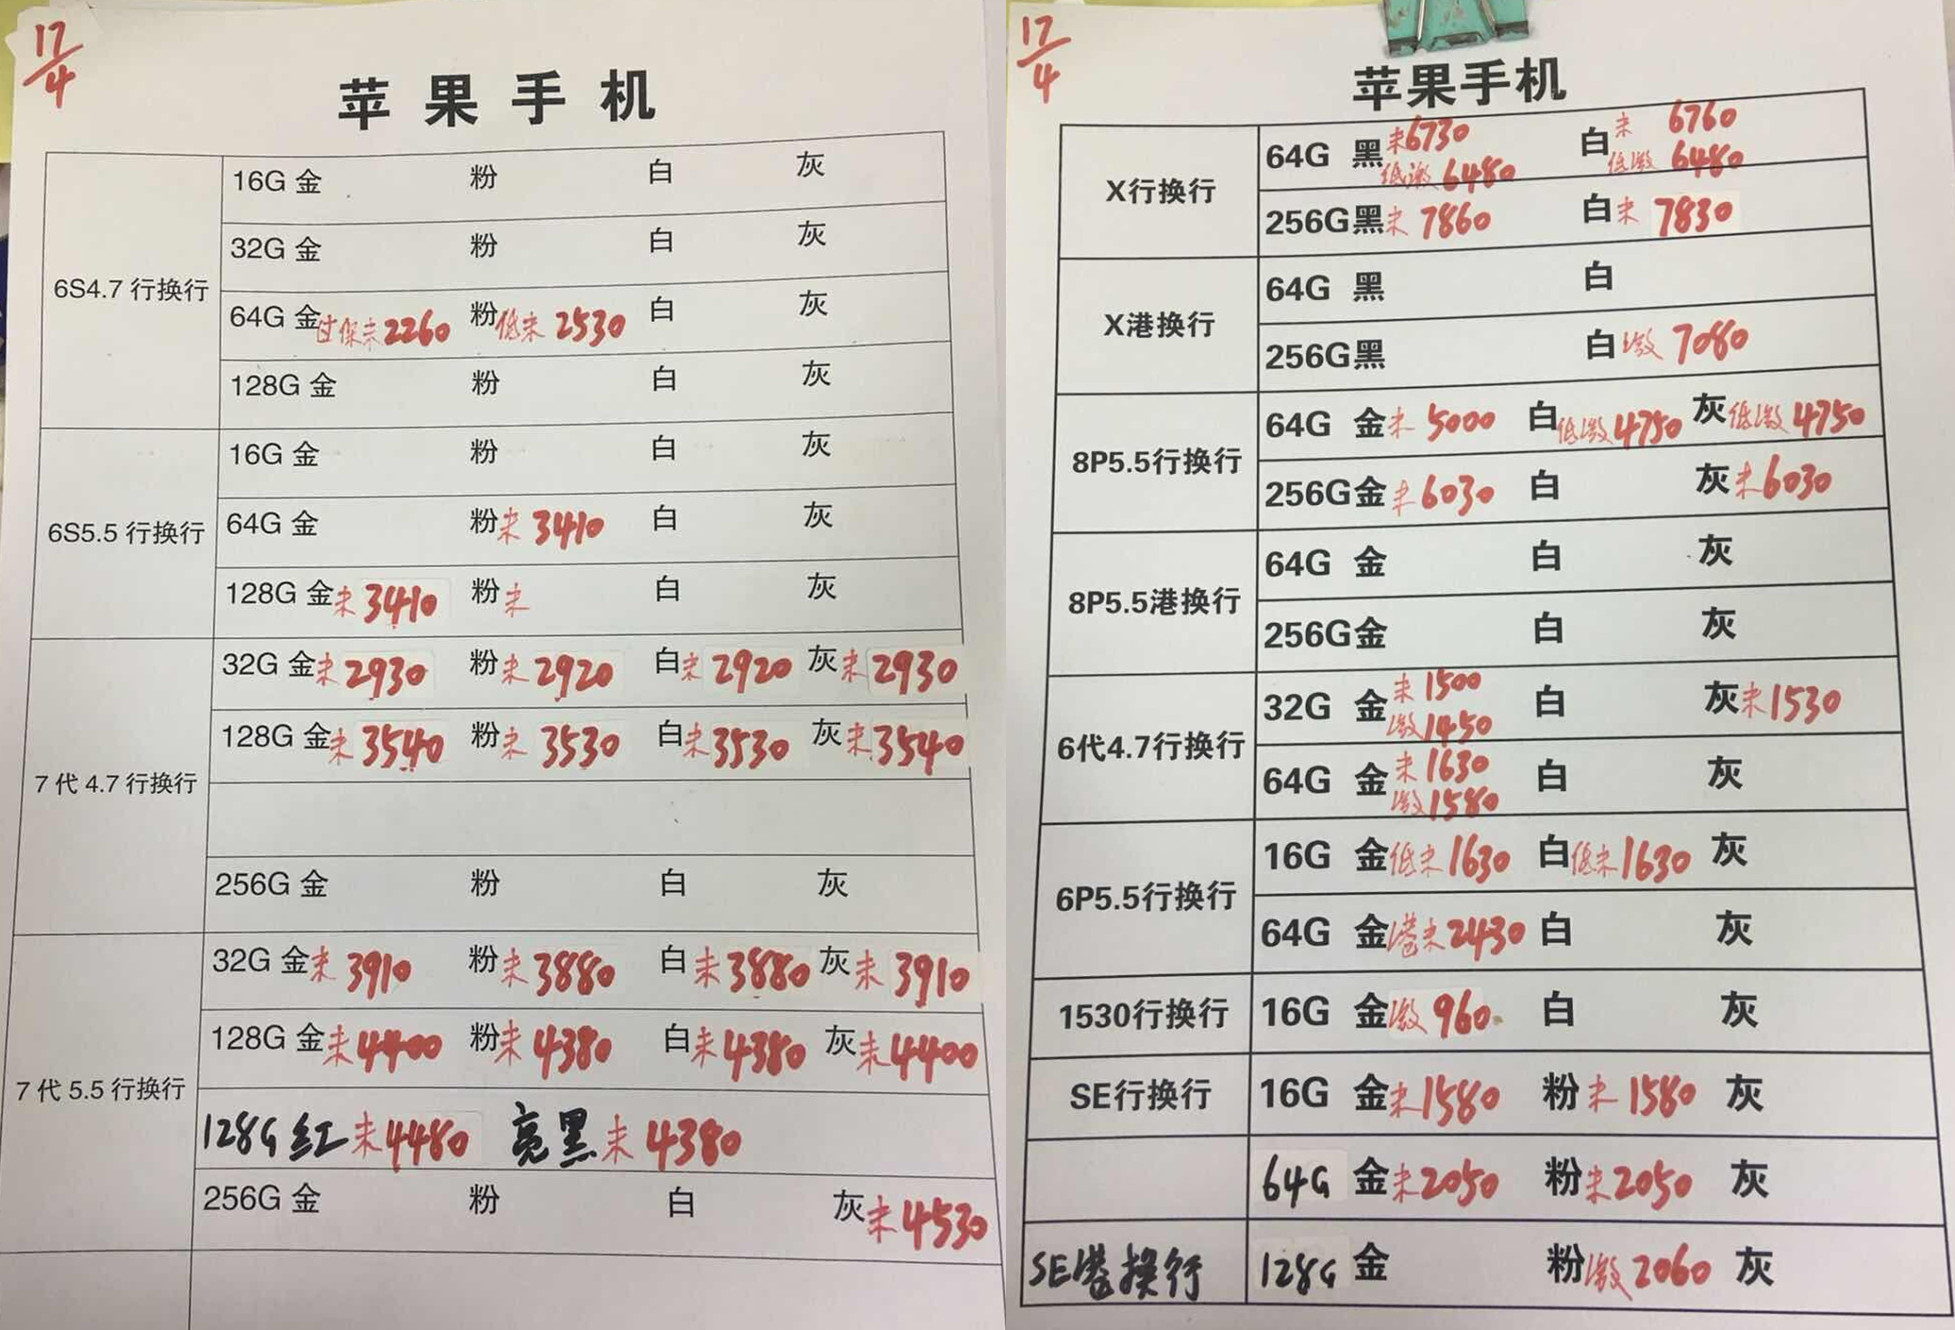 17/4
苹果手机
6S4.7 行换行
16G 金 粉 白 灰
32G 金 粉 白 灰
64G 金 过保未2260 粉 低未 2530 白 灰
128G 金 粉 白 灰
6S5.5 行换行
16G 金 粉 白 灰
64G 金 粉 未 3410 白 灰
128G 金 未 3410 粉 未 白 灰
7 代 4.7 行换行
32G 金 未 2930 粉 未 2920 白 未 2920 灰 未 2930
128G 金 未 3540 粉 未 3530 白 未 3530 灰 未 3540
256G 金 粉 白 灰
7 代 5.5 行换行
32G 金 未 3910 粉 未 3880 白 未 3880 灰 未 3910
128G 金 未 4400 粉 未 4380 白 未 4380 灰 未 4400
128G 红 未 4480 亮黑 未 4380
256G 金 粉 白 灰 未 4530
17/4
苹果手机
X行换行
64G 黑 未6730 白 未 6760
低激 6480 低激 6480
256G黑 未 7860 白 未 7830
X港换行
64G 黑 白
256G黑 白 激 7080
8P5.5行换行
64G 金 未 5000 白 低激 4750 灰 低激 4750
256G金 未 6030 白 灰 未 6030
8P5.5港换行
64G 金 白 灰
256G金 白 灰
6代4.7行换行
32G 金 未 1500 白 灰 未 1530
激 1450
64G 金 未 1630 白 灰
激 1580
6P5.5行换行
16G 金 低未 1630 白 低未 1630 灰
64G 金 港未 2430 白 灰
1530行换行
16G 金 激 960 白 灰
SE行换行
16G 金 未 1580 粉 未 1580 灰
64G 金 未 2050 粉 未 2050 灰
SE港换行
128G 金 粉 激 2060 灰